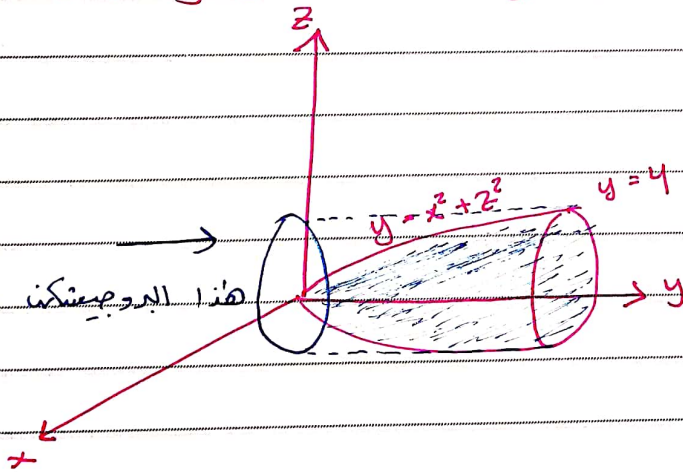 z
y = x² + z²
y = 4
هذا البروجيكشن
y
x